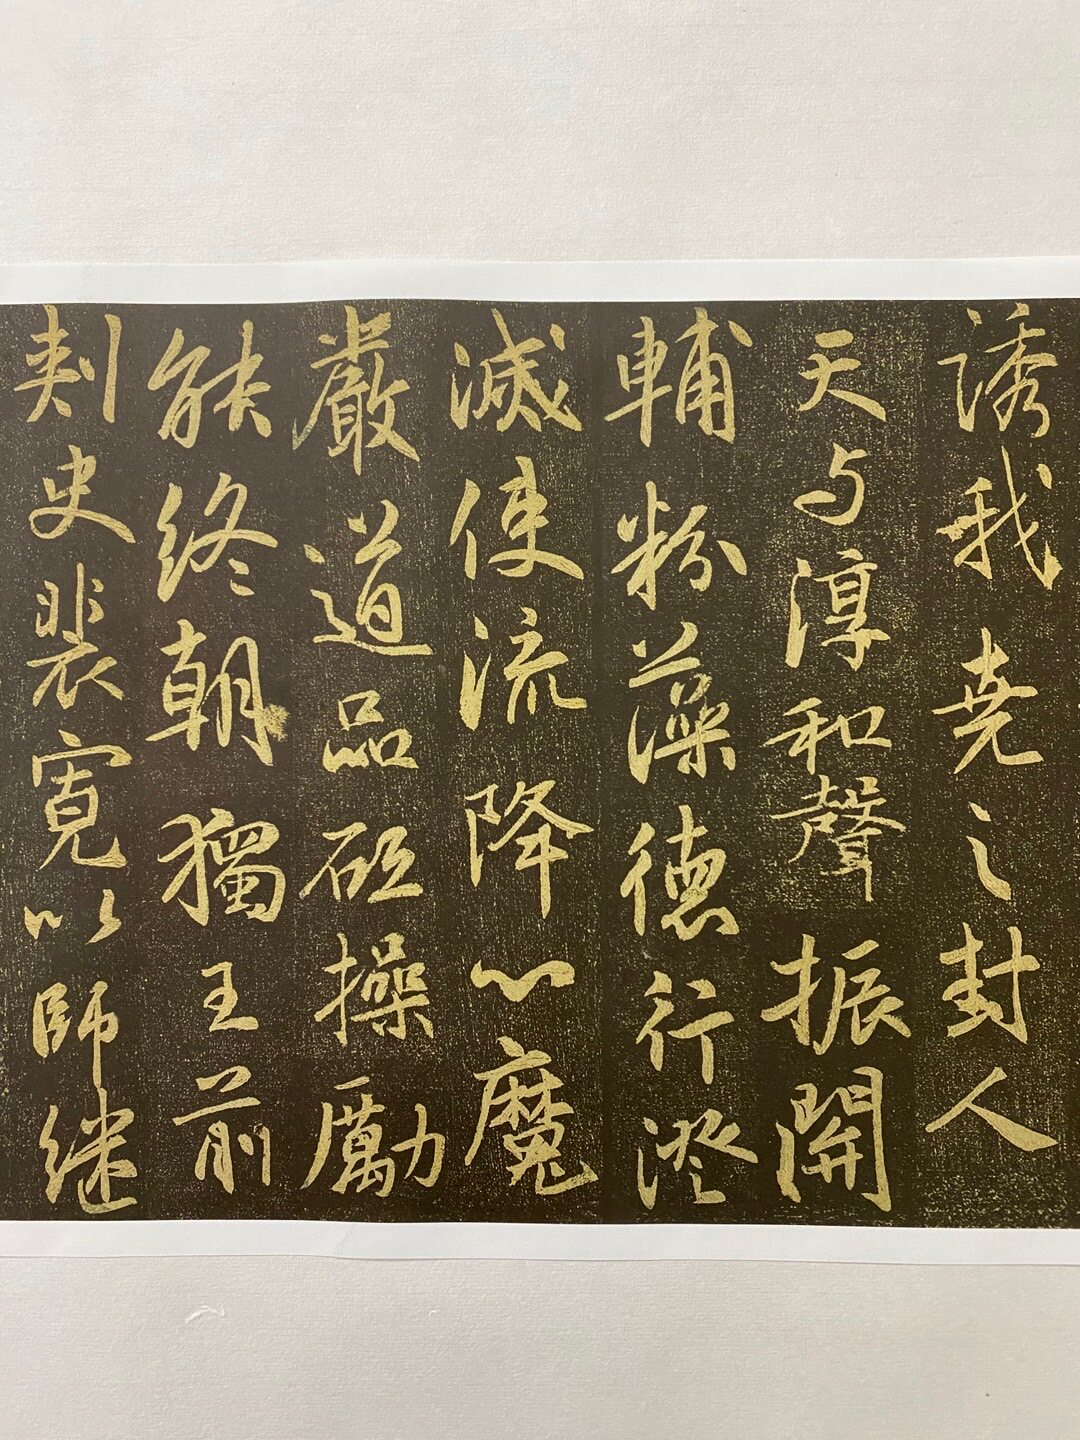 诱我尭之封人
天与淳和聲振開
輔粉藻德行澄
滅使流降心魔
嚴道品砥操勵
能終朝獨王前
刾史裴寛以師继